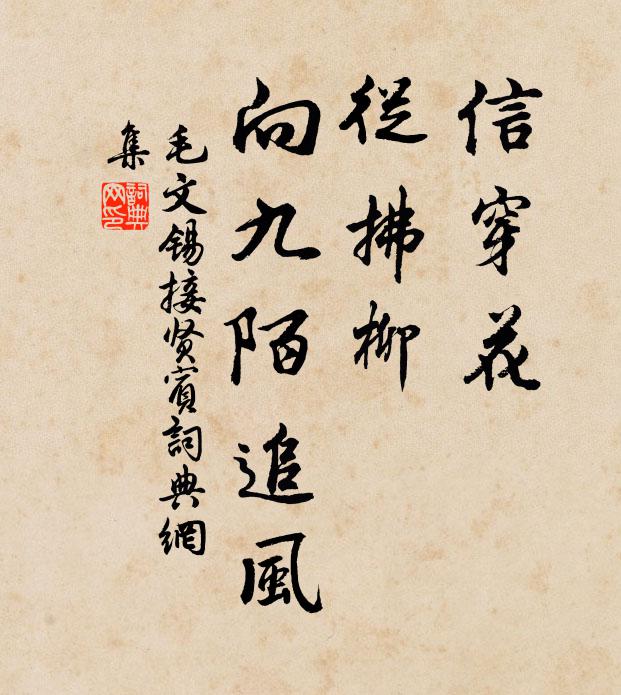 信穿花
從拂柳
向九陌追風
毛文锡接贤賓詞典網
集
詞典
网印